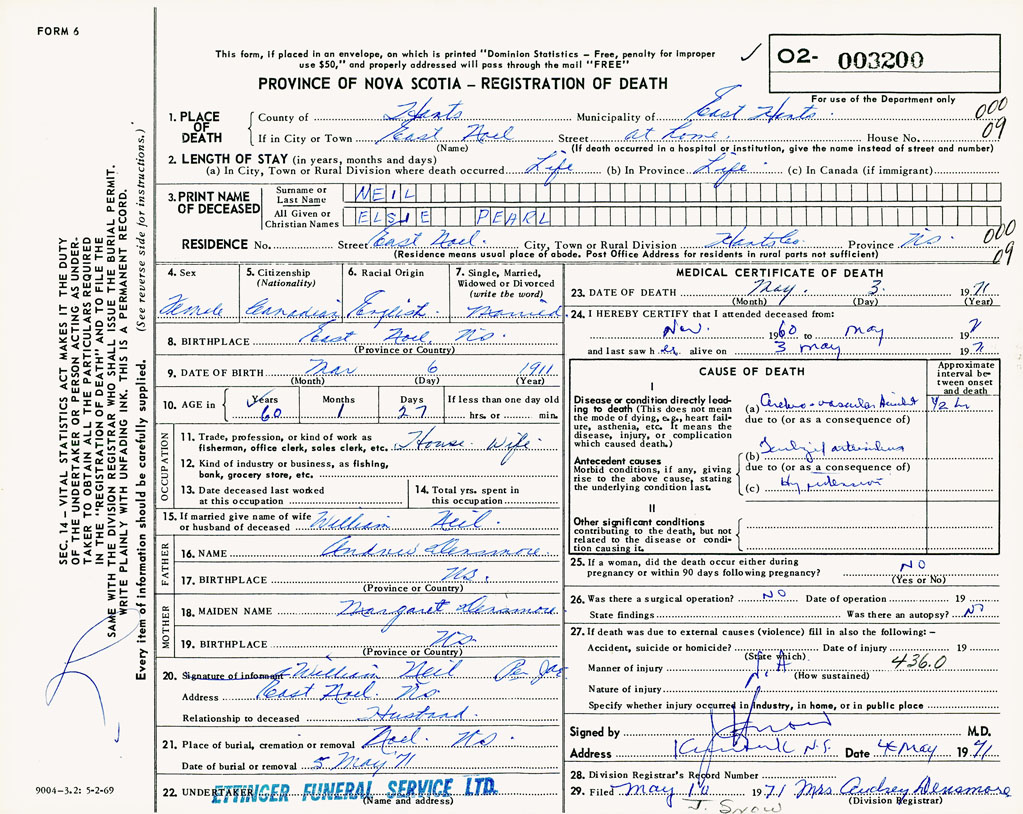 FORM 6
This form, if placed in an envelope, on which is printed "Dominion Statistics – Free, penalty for improper
use $50," and properly addressed will pass through the mail "FREE"
02- 003200
PROVINCE OF NOVA SCOTIA – REGISTRATION OF DEATH
For use of the Department only
1. PLACE OF DEATH
County of Hants Municipality of East Hants 000
If in City or Town East Noel Street at home House No. 09
(Name) (If death occurred in a hospital or institution, give the name instead of street and number)
2. LENGTH OF STAY (in years, months and days)
(a) In City, Town or Rural Division where death occurred Life (b) In Province Life (c) In Canada (if immigrant)
3. PRINT NAME OF DECEASED
Surname or Last Name NEIL
All Given or Christian Names ELSIE PEARL
RESIDENCE No. Street East Noel. City, Town or Rural Division Hants Co. Province NS 000
(Residence means usual place of abode. Post Office Address for residents in rural parts not sufficient) 09
SEC. 14 – VITAL STATISTICS ACT MAKES IT THE DUTY
OF THE UNDERTAKER OR PERSON ACTING AS UNDER-
TAKER TO OBTAIN ALL THE PARTICULARS REQUIRED
IN THE "REGISTRATION OF DEATH" AND TO FILE THE
SAME WITH THE DIVISION REGISTRAR WHO SHALL ISSUE THE BURIAL PERMIT.
WRITE PLAINLY WITH UNFADING INK. THIS IS A PERMANENT RECORD.
Every item of information should be carefully supplied. (See reverse side for instructions.)
4. Sex
Female
5. Citizenship
(Nationality)
Canadian
6. Racial Origin
English
7. Single, Married,
Widowed or Divorced
(write the word)
Married
8. BIRTHPLACE East Noel, NS.
(Province or Country)
9. DATE OF BIRTH Mar 6 1911
(Month) (Day) (Year)
10. AGE in Years 60 Months 1 Days 27 If less than one day old
hrs. or min.
OCCUPATION
11. Trade, profession, or kind of work as
fishermen, office clerk, sales clerk, etc. House Wife
12. Kind of industry or business, as fishing,
bank, grocery store, etc.
13. Date deceased last worked
at this occupation
14. Total yrs. spent in
this occupation
15. If married give name of wife
or husband of deceased William Neil
FATHER
16. NAME Andrew Densmore
17. BIRTHPLACE NS.
(Province or Country)
MOTHER
18. MAIDEN NAME Margaret Densmore
19. BIRTHPLACE NS
(Province or Country)
20. Signature of informant William Neil Per
Address East Noel NS
Relationship to deceased Husband.
21. Place of burial, cremation or removal Noel. NS.
Date of burial or removal 5 May '71
22. UNDERTAKER ETTINGER FUNERAL SERVICE LTD.
(Name and address)
9004-3.2: 5-2-69
MEDICAL CERTIFICATE OF DEATH
23. DATE OF DEATH May 3 1971
(Month) (Day) (Year)
24. I HEREBY CERTIFY that I attended deceased from:
Nov. 1960 to May 197
and last saw her alive on 3 May 1971
CAUSE OF DEATH
Approximate
interval be-
tween onset
and death
I
Disease or condition directly lead-
ing to death (This does not mean
the mode of dying, e.g., heart fail-
ure, asthenia, etc. It means the
disease, injury, or complication
which caused death.)
(a) Cerebro-vascular Accident 1/2 hr
due to (or as a consequence of)
Antecedent causes
Morbid conditions, if any, giving
rise to the above cause, stating
the underlying condition last.
(b)
due to (or as a consequence of)
(c) Hypertension
II
Other significant conditions
contributing to the death, but not
related to the disease or condi-
tion causing it.
25. If a woman, did the death occur either during
pregnancy or within 90 days following pregnancy? NO
(Yes or No)
26. Was there a surgical operation? NO Date of operation 19
State findings Was there an autopsy? No
27. If death was due to external causes (violence) fill in also the following: –
Accident, suicide or homicide? Date of injury 19
(State which) 436.0
Manner of injury N.A
(How sustained)
Nature of injury
Specify whether injury occurred in industry, in home, or in public place
Signed by M.D.
Address Kennetcook N.S. Date 4 May 1971
28. Division Registrar's Record Number
29. Filed May 14 1971 Mrs. Audrey Densmore
(Division Registrar)
J. Snow